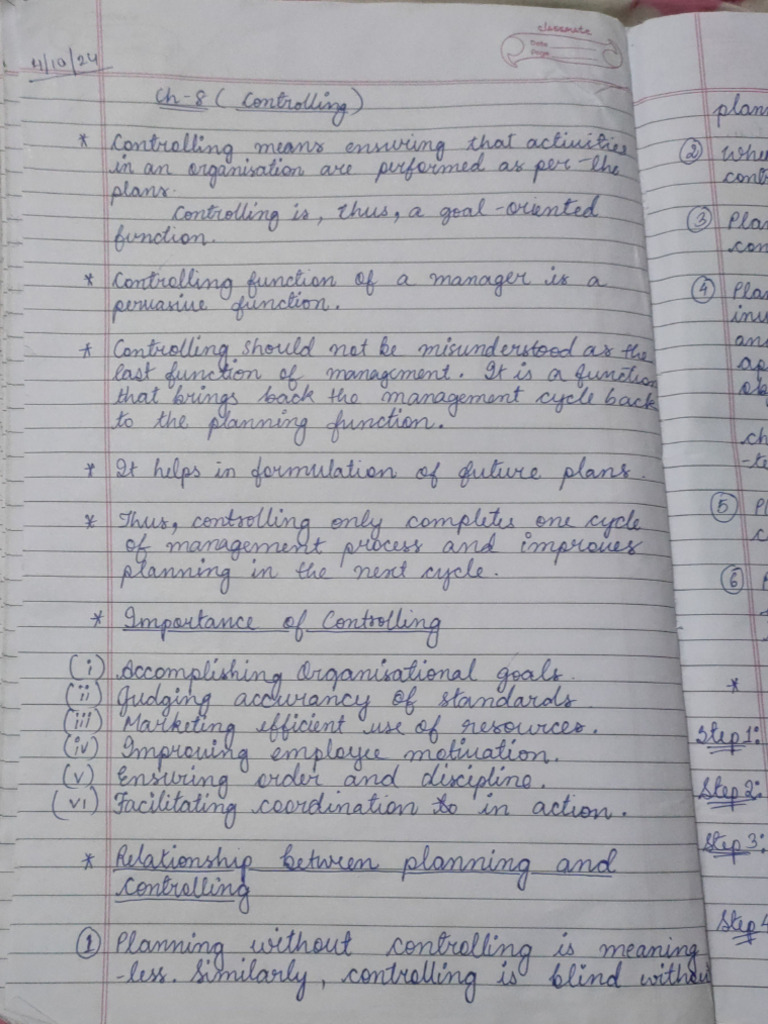 classmate
Date
Page
4/10/24
Ch-8 (Controlling)
* Controlling means ensuring that activities
in an organisation are performed as per the
plans.
Controlling is, thus, a goal-oriented
function.
* Controlling function of a manager is a
pervasive function.
* Controlling should not be misunderstood as the
last function of management. It is a function
that brings back the management cycle back
to the planning function.
* It helps in formulation of future plans.
* Thus, controlling only completes one cycle
of management process and improves
planning in the next cycle.
* Importance of Controlling
(i) Accomplishing Organisational goals.
(ii) Judging accurancy of standards.
(iii) Marketing efficient use of resources.
(iv) Improving employee motivation.
(v) Ensuring order and discipline.
(vi) Facilitating coordination in action.
* Relationship between planning and
controlling
① Planning without controlling is meaning
-less. Similarly, controlling is blind without
②
③
④
⑤
⑥
*
Step 1:
Step 2:
Step 3:
Step 4